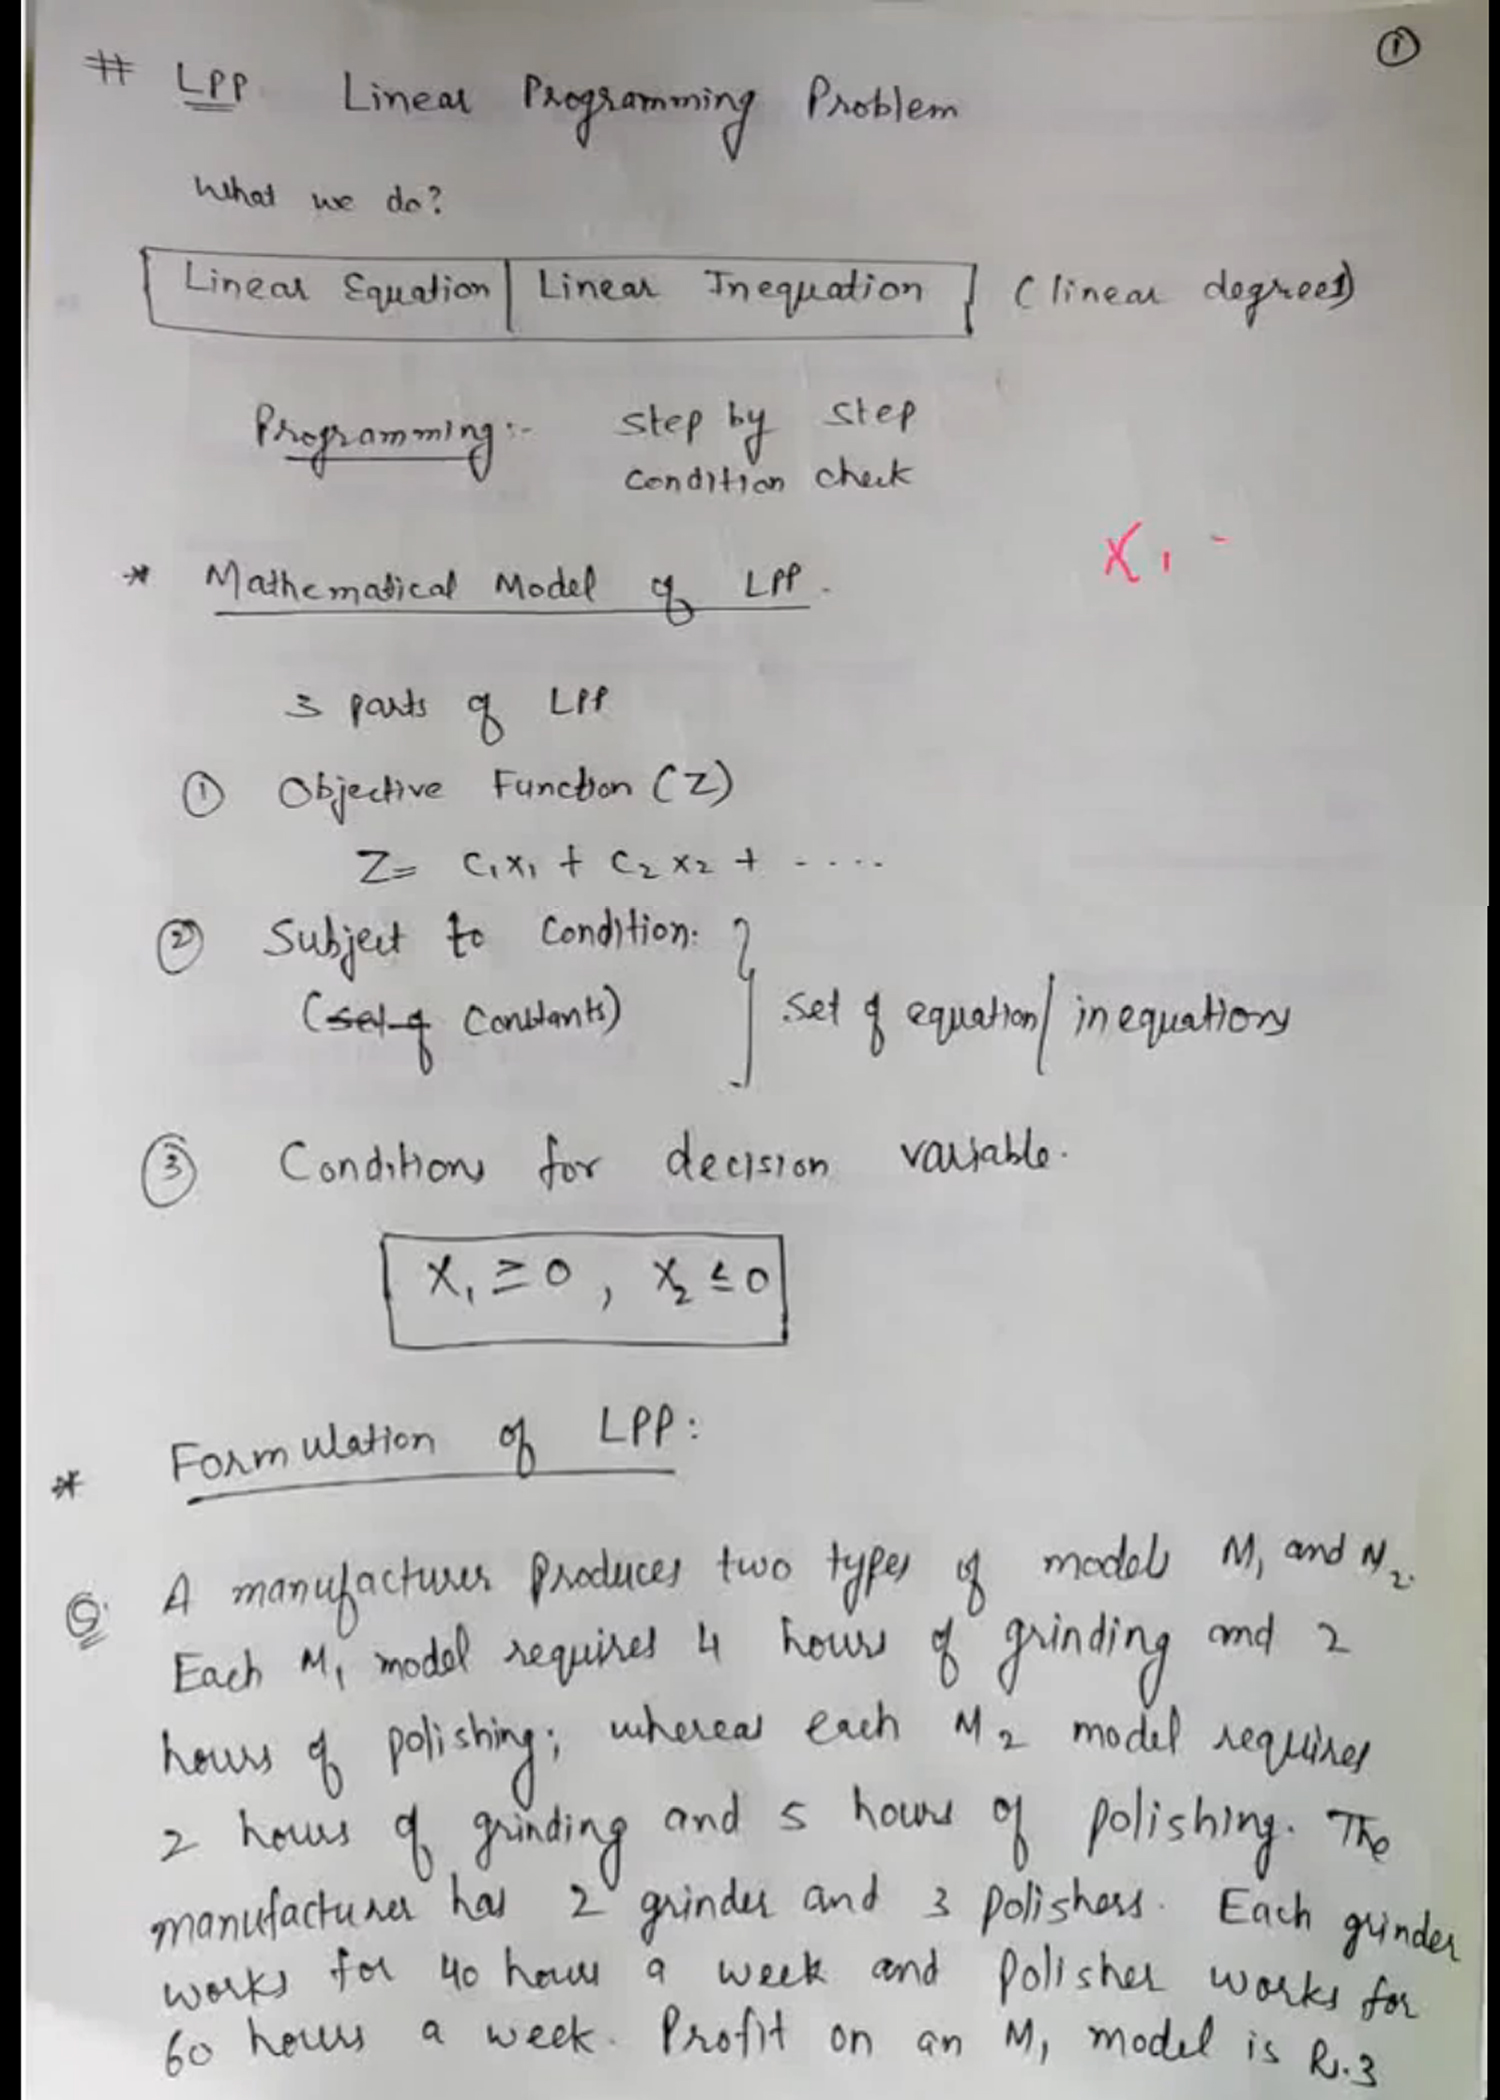 ①
# LPP Linear Programming Problem
What we do?
Linear Equation | Linear Inequation } (linear degrees)
Programming:- step by step
condition check
X1 -
* Mathematical Model of LPP.
3 parts of LPP
① Objective Function (Z)
Z = C1X1 + C2X2 + - . . . .
② Subject to Condition.
(set of Constants) } set of equation/inequations
③ Conditions for decision variable.
X1 ≥ 0 , X2 ≤ 0
* Formulation of LPP:
Q. A manufacturer produces two types of models M1 and M2.
Each M1 model requires 4 hours of grinding and 2
hours of polishing; whereas each M2 model requires
2 hours of grinding and 5 hours of polishing. The
manufacturer has 2 grinder and 3 polishers. Each grinder
works for 40 hours a week and polisher works for
60 hours a week. Profit on an M1 model is Rs.3